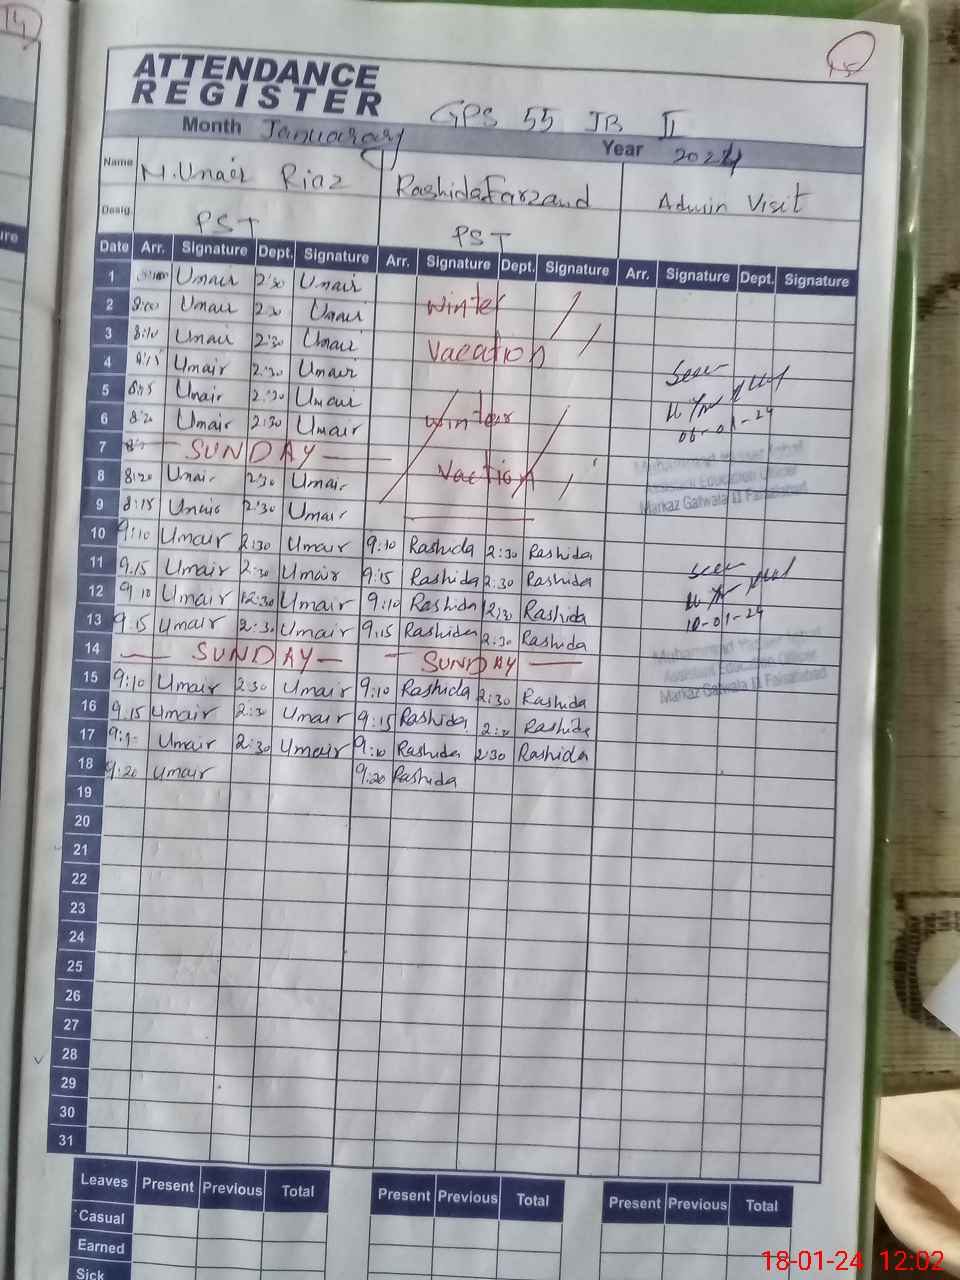 14
15
ATTENDANCE
REGISTER
GPS 55 JB II
Month Januarary
Year 2024
Name M.Umair Riaz Rashida Farzand Admin Visit
Desig. PST PST
Date Arr. Signature Dept. Signature Arr. Signature Dept. Signature Arr. Signature Dept. Signature
1 Umair 2:30 Umair
2 8:00 Umair 2:30 Umair Winter
3 8:10 Umair 2:30 Umair Vacation
4 8:15 Umair 2:30 Umair Seen
5 8:15 Umair 2:30 Umair
6 8:20 Umair 2:30 Umair Winter 06-01-24
7 SUNDAY
8 8:20 Umair 2:30 Umair Vaction
Assistant Education Officer
Markaz Gatwala II Faisalabad
9 8:15 Umair 2:30 Umair
10 9:10 Umair 2:30 Umair 9:10 Rashida 2:30 Rashida
11 9.15 Umair 2:30 Umair 9:15 Rashida 2:30 Rashida seen
12 9 10 Umair 12:30 Umair 9:10 Rashida 2:30 Rashida
13 9.15 Umair 2:30 Umair 9.15 Rashida 2:30 Rashida 10-01-24
14 SUNDAY SUNDAY
Assistant Education Officer
Markaz Gatwala II Faisalabad
15 9:10 Umair 2:30 Umair 9:10 Rashida 2:30 Rashida
16 9.15 Umair 2:30 Umair 9:15 Rashida 2:30 Rashida
17 Umair 2:30 Umair 9:10 Rashida 2:30 Rashida
18 9:20 Umair 9.20 Rashida
19
20
21
22
23
24
25
26
27
28
29
30
31
Leaves Present Previous Total Present Previous Total Present Previous Total
Casual
Earned
Sick
18-01-24 12:02